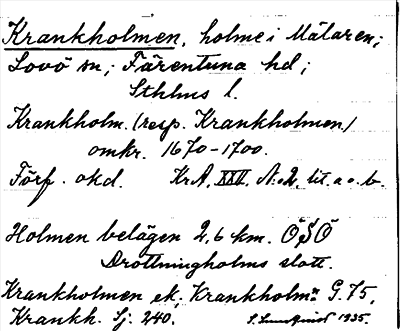 Krankholmen, holme i Mälaren;
Lovö sn; Färentuna hd;
Sthlms l.
Krankholm. (resp. Krankholmen)
omkr. 1670-1700.
Förf. okd. Kr.A. XXII. N:o 2, lit. a o. b.
Holmen belägen 2,6 km. ÖSÖ
Drottningholms slott.
Krankholmen ek, Krankholmn G. 75,
Krankh. Sj. 240. 1935.